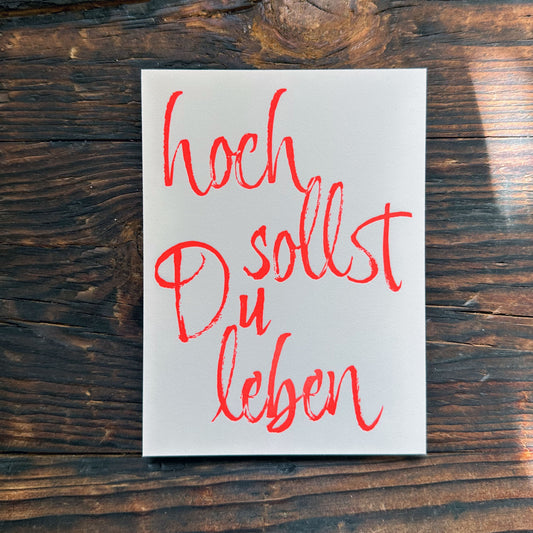 hoch
sollst
Du
leben